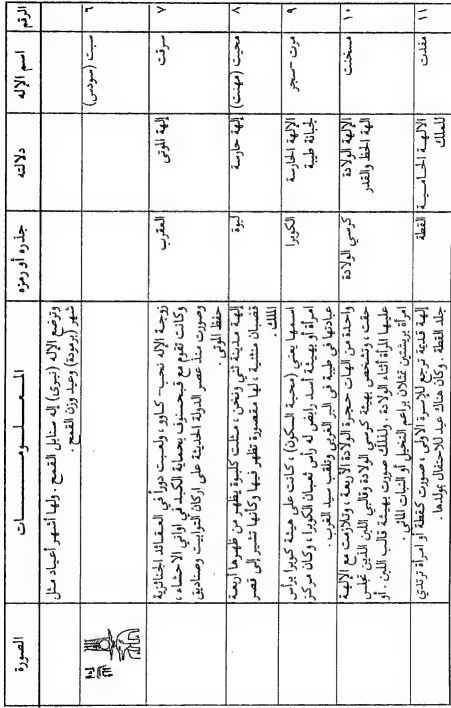 الرقم
اسم الإله
دلالته
جذره أو رمزه
المعلومات
الصورة
وترضع الإله (نبرى) إله سنابل القمح . ولها أشهر أعياد مثل
شهر (برمودة) وعيد وزن القمح .
٦
سبت (سودس)
٧
سرقت
إلهة الموتى
العقرب
زوجة الإله نحب- كاوو ، ولعبت دوراً في العقائد الجنائزية
وكانت تقوم مع قبحسنوف بحماية الكبد في اواني الاحشاء ،
وصورت منذ عصر الدولة الحديثة على اركان التوابيت وصناديق
حفظ الموتى .
٨
محيت (مهنت)
إلهة حارسة
لبوة
إلهة مدينة ثني ونخن ، مثلت كلبوة يظهر من ظهرها أربعة
قضبان منثنية ، لها مقصورة تظهر فيها وكأنها تشير إلى قصر
الملك .
٩
مرت -سجر
الإلهة الحارسة
لجبانة طيبة
الكوبرا
اسمها يعني (محبة السكون) ، كانت على هيئة كوبرا برأس
امرأة أو بهيئة أسد رابض له رأس ثعبان الكوبرا ، وكان مركز
عبادتها في طيبة في البر الغربي وتلقب سيد الغرب .
١٠
مسخنت
الإلهة الولادة
الهة الحظ والقدر
كرسي الولادة
واحدة من الهات حجرة الولادة الأربعة ، وتلازمت مع الإلهة
حقت ، وتشخص بهيئة كرسي الولادة وقالبي اللبن اللذين تجلس
عليها المرأة أثناء الولادة . ولذلك صورت بهيئة قالب اللبن . أو
امرأة بريشتين تمثلان براعم النخيل أو النبات المائي .
١١
مفلدت
الالهة الحامية
للملك
القطة
إلهة قديمة ترجع للاسرة الأولى ، صورت كقطة أو امرأة ترتدي
جلد القطة . وكان هناك عيد للاحتفال بمولدها .